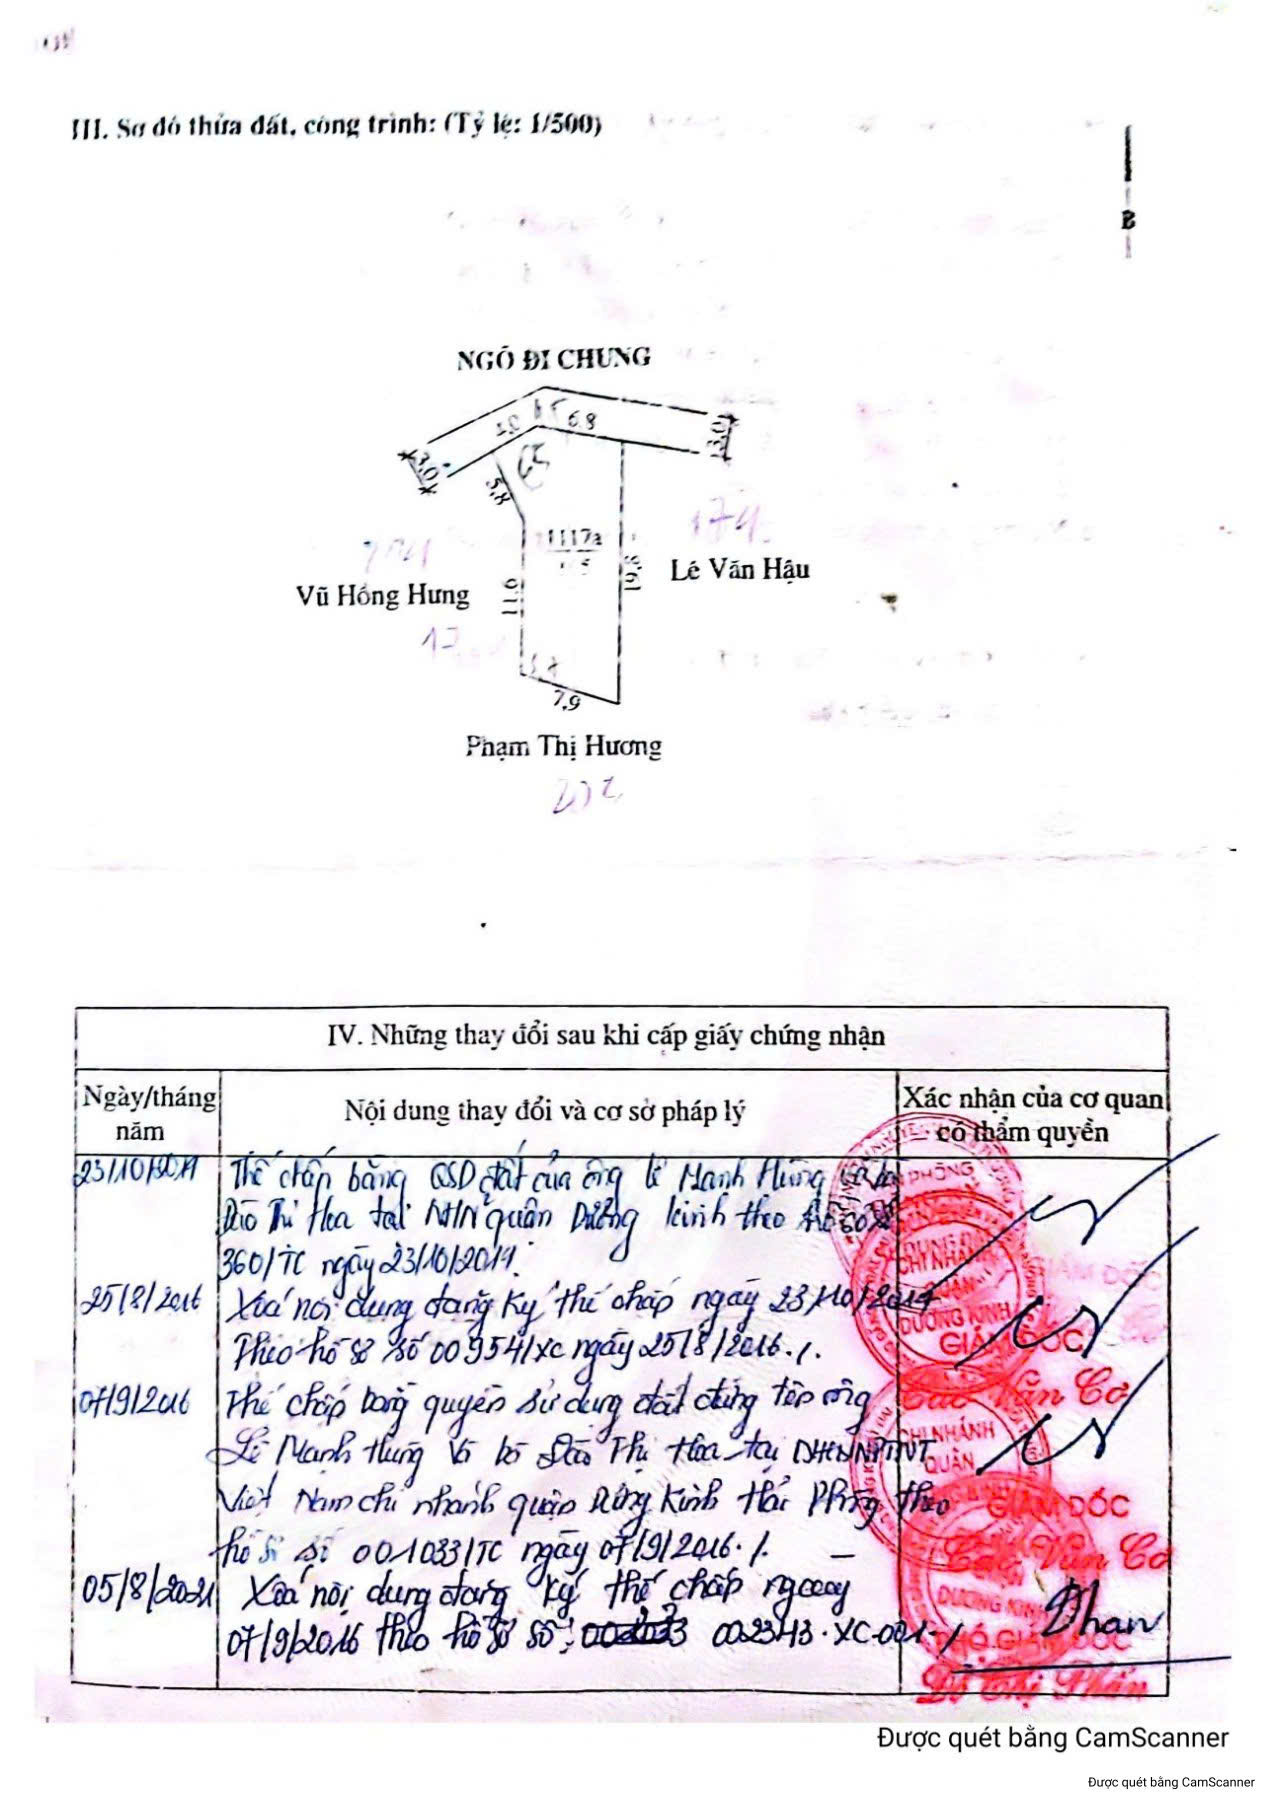 III. Sơ đồ thửa đất, công trình: (Tỷ lệ: 1/500)
B
NGÕ ĐI CHUNG
6.8
3.0
3.0
5.8
1117a
174
Lê Văn Hậu
19.8
Vũ Hồng Hưng
11.0
7,9
Phạm Thị Hương
202
IV. Những thay đổi sau khi cấp giấy chứng nhận
Ngày/tháng năm
Nội dung thay đổi và cơ sở pháp lý
Xác nhận của cơ quan có thẩm quyền
23/10/2014 Thế chấp bằng QSD đất của ông Lê Mạnh Hùng và bà
Đào Thị Hoa tại NHN quận Dương Kinh theo hồ số
360/TC ngày 23/10/2014.
25/8/2016 Xóa nội dung đăng ký thế chấp ngày 23/10/2014
Theo hồ sơ số 00954/XC ngày 25/8/2016./.
07/9/2016 Thế chấp bằng quyền sử dụng đất đứng tên ông
Lê Mạnh Hùng và bà Đào Thị Hoa tại NHNNPTNT
Việt Nam chi nhánh quận Dương Kinh Hải Phòng theo
hồ sơ số 001033/TC ngày 07/9/2016./.
05/8/2021 Xóa nội dung đăng ký thế chấp ngày
07/9/2016 theo hồ sơ số: 002343.XC-001-/
PHÒNG
CHI NHÁNH
QUẬN
DƯƠNG KINH
GIÁM ĐỐC
GIÁM ĐỐC
CHI NHÁNH
QUẬN
GIÁM ĐỐC
Cao Văn Cơ
DƯƠNG KINH
PHÓ GIÁM ĐỐC
Nhan
Được quét bằng CamScanner
Được quét bằng CamScanner